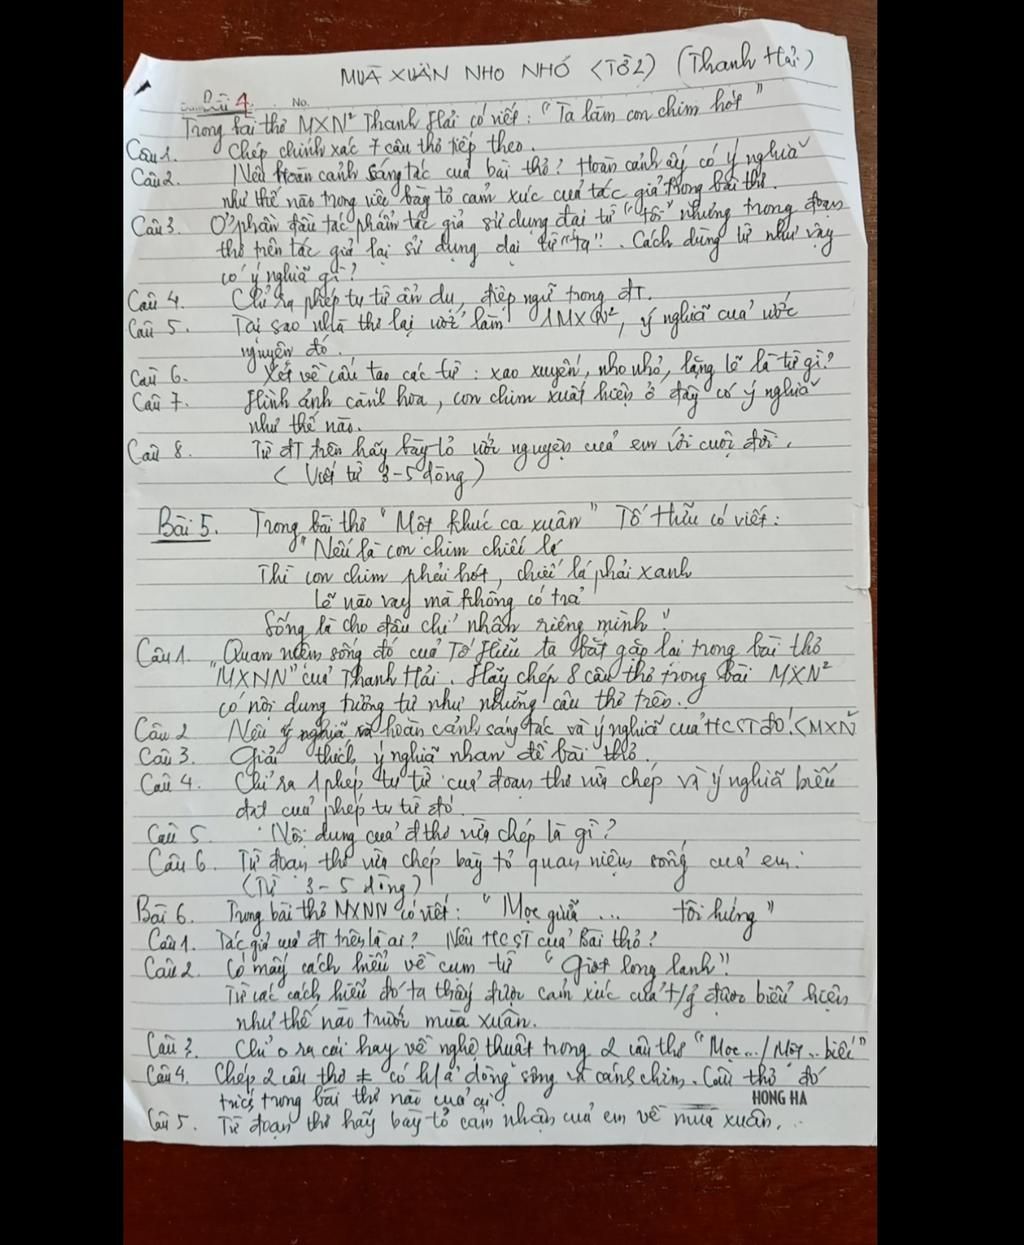 MUÀ XUÂN NHO NHỎ (TỜ 2) (Thanh Hải)
Bài 4. No.
Trong bài thơ MXN² Thanh Hải có viết: "Ta làm con chim hót"
Câu 1. Chép chính xác 7 câu thơ tiếp theo.
Câu 2. Nêu hoàn cảnh sáng tác của bài thơ? Hoàn cảnh ấy có ý nghĩa
như thế nào trong việc bày tỏ cảm xúc của tác giả trong bài thơ.
Câu 3. Ở phần đầu tác phẩm tác giả sử dụng đại từ "tôi" nhưng trong đoạn
thơ trên tác giả lại sử dụng đại từ "ta". Cách dùng từ như vậy
có ý nghĩa gì?
Câu 4. Chỉ ra phép tu từ ẩn dụ, điệp ngữ trong đT.
Câu 5. Tại sao nhà thơ lại ước làm 1 MXN², ý nghĩa của ước
nguyện đó.
Câu 6. Xét về cấu tạo các từ: xao xuyến, nho nhỏ, lặng lẽ là từ gì?
Câu 7. Hình ảnh cành hoa, con chim xuất hiện ở đây có ý nghĩa
như thế nào.
Câu 8. Từ đT trên hãy bày tỏ ước nguyện của em với cuộc đời.
(Viết từ 3-5 dòng)
Bài 5. Trong bài thơ "Một khúc ca xuân" Tố Hữu có viết:
"Nếu là con chim chiếc lá
Thì con chim phải hót, chiếc lá phải xanh
Lẽ nào vay mà không có trả
Sống là cho đâu chỉ nhận riêng mình"
Câu 1. "Quan niệm sống đó của Tố Hữu ta bắt gặp lại trong bài thơ
"MXNN" của Thanh Hải. Hãy chép 8 câu thơ trong bài MXN²
có nội dung tương tự như những câu thơ trên.
Câu 2 Nêu ý nghĩa và hoàn cảnh sáng tác và ý nghĩa của HCST đó. (MXN²
Câu 3. Giải thích ý nghĩa nhan đề bài thơ.
Câu 4. Chỉ ra 1 phép tu từ của đoạn thơ vừa chép và ý nghĩa biểu
đạt của phép tu từ đó.
Câu 5. Nội dung của đ thơ vừa chép là gì?
Câu 6. Từ đoạn thơ vừa chép bày tỏ quan niệm sống của em.
(Từ 3-5 dòng)
Bài 6. Trong bài thơ MXNN có viết: "Mọc giữa ... tôi hứng"
Câu 1. Tác giả của đT trên là ai? Nêu HCST của Bài thơ?
Câu 2. Có mấy cách hiểu về cụm từ "Giọt long lanh"!
Từ các cách hiểu đó ta thấy được cảm xúc của t/g được biểu hiện
như thế nào trước mùa xuân.
Câu 3. Chỉ ra cái hay về nghệ thuật trong 2 câu thơ "Mọc.../Một...biếc"
Câu 4. Chép 2 câu thơ ≠ có h/ả dòng sông và cánh chim. Câu thơ đó
trích trong bài thơ nào của ai
HONG HA
Câu 5. Từ đoạn thơ hãy bày tỏ cảm nhận của em về mùa xuân.